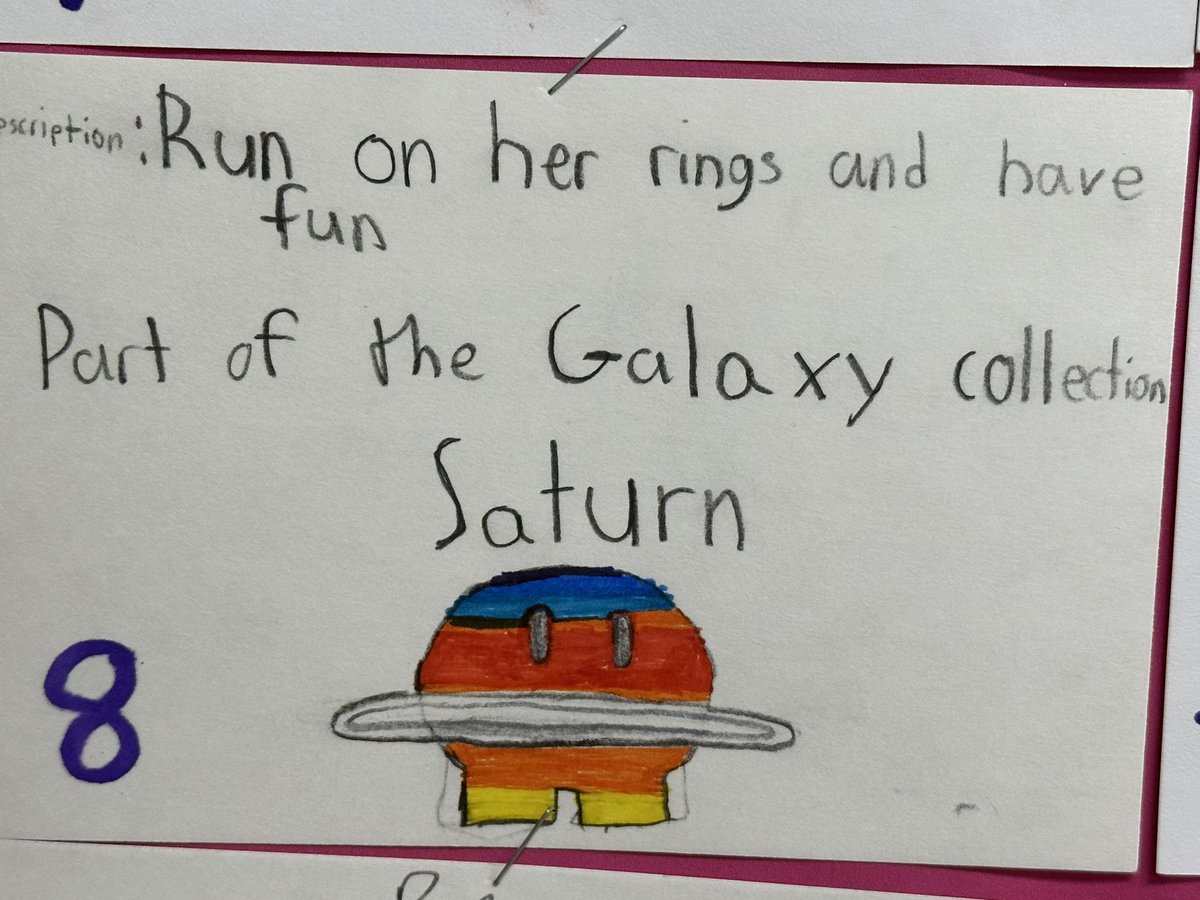 escription: Run on her rings and have
fun
Part of the Galaxy collection
Saturn
8